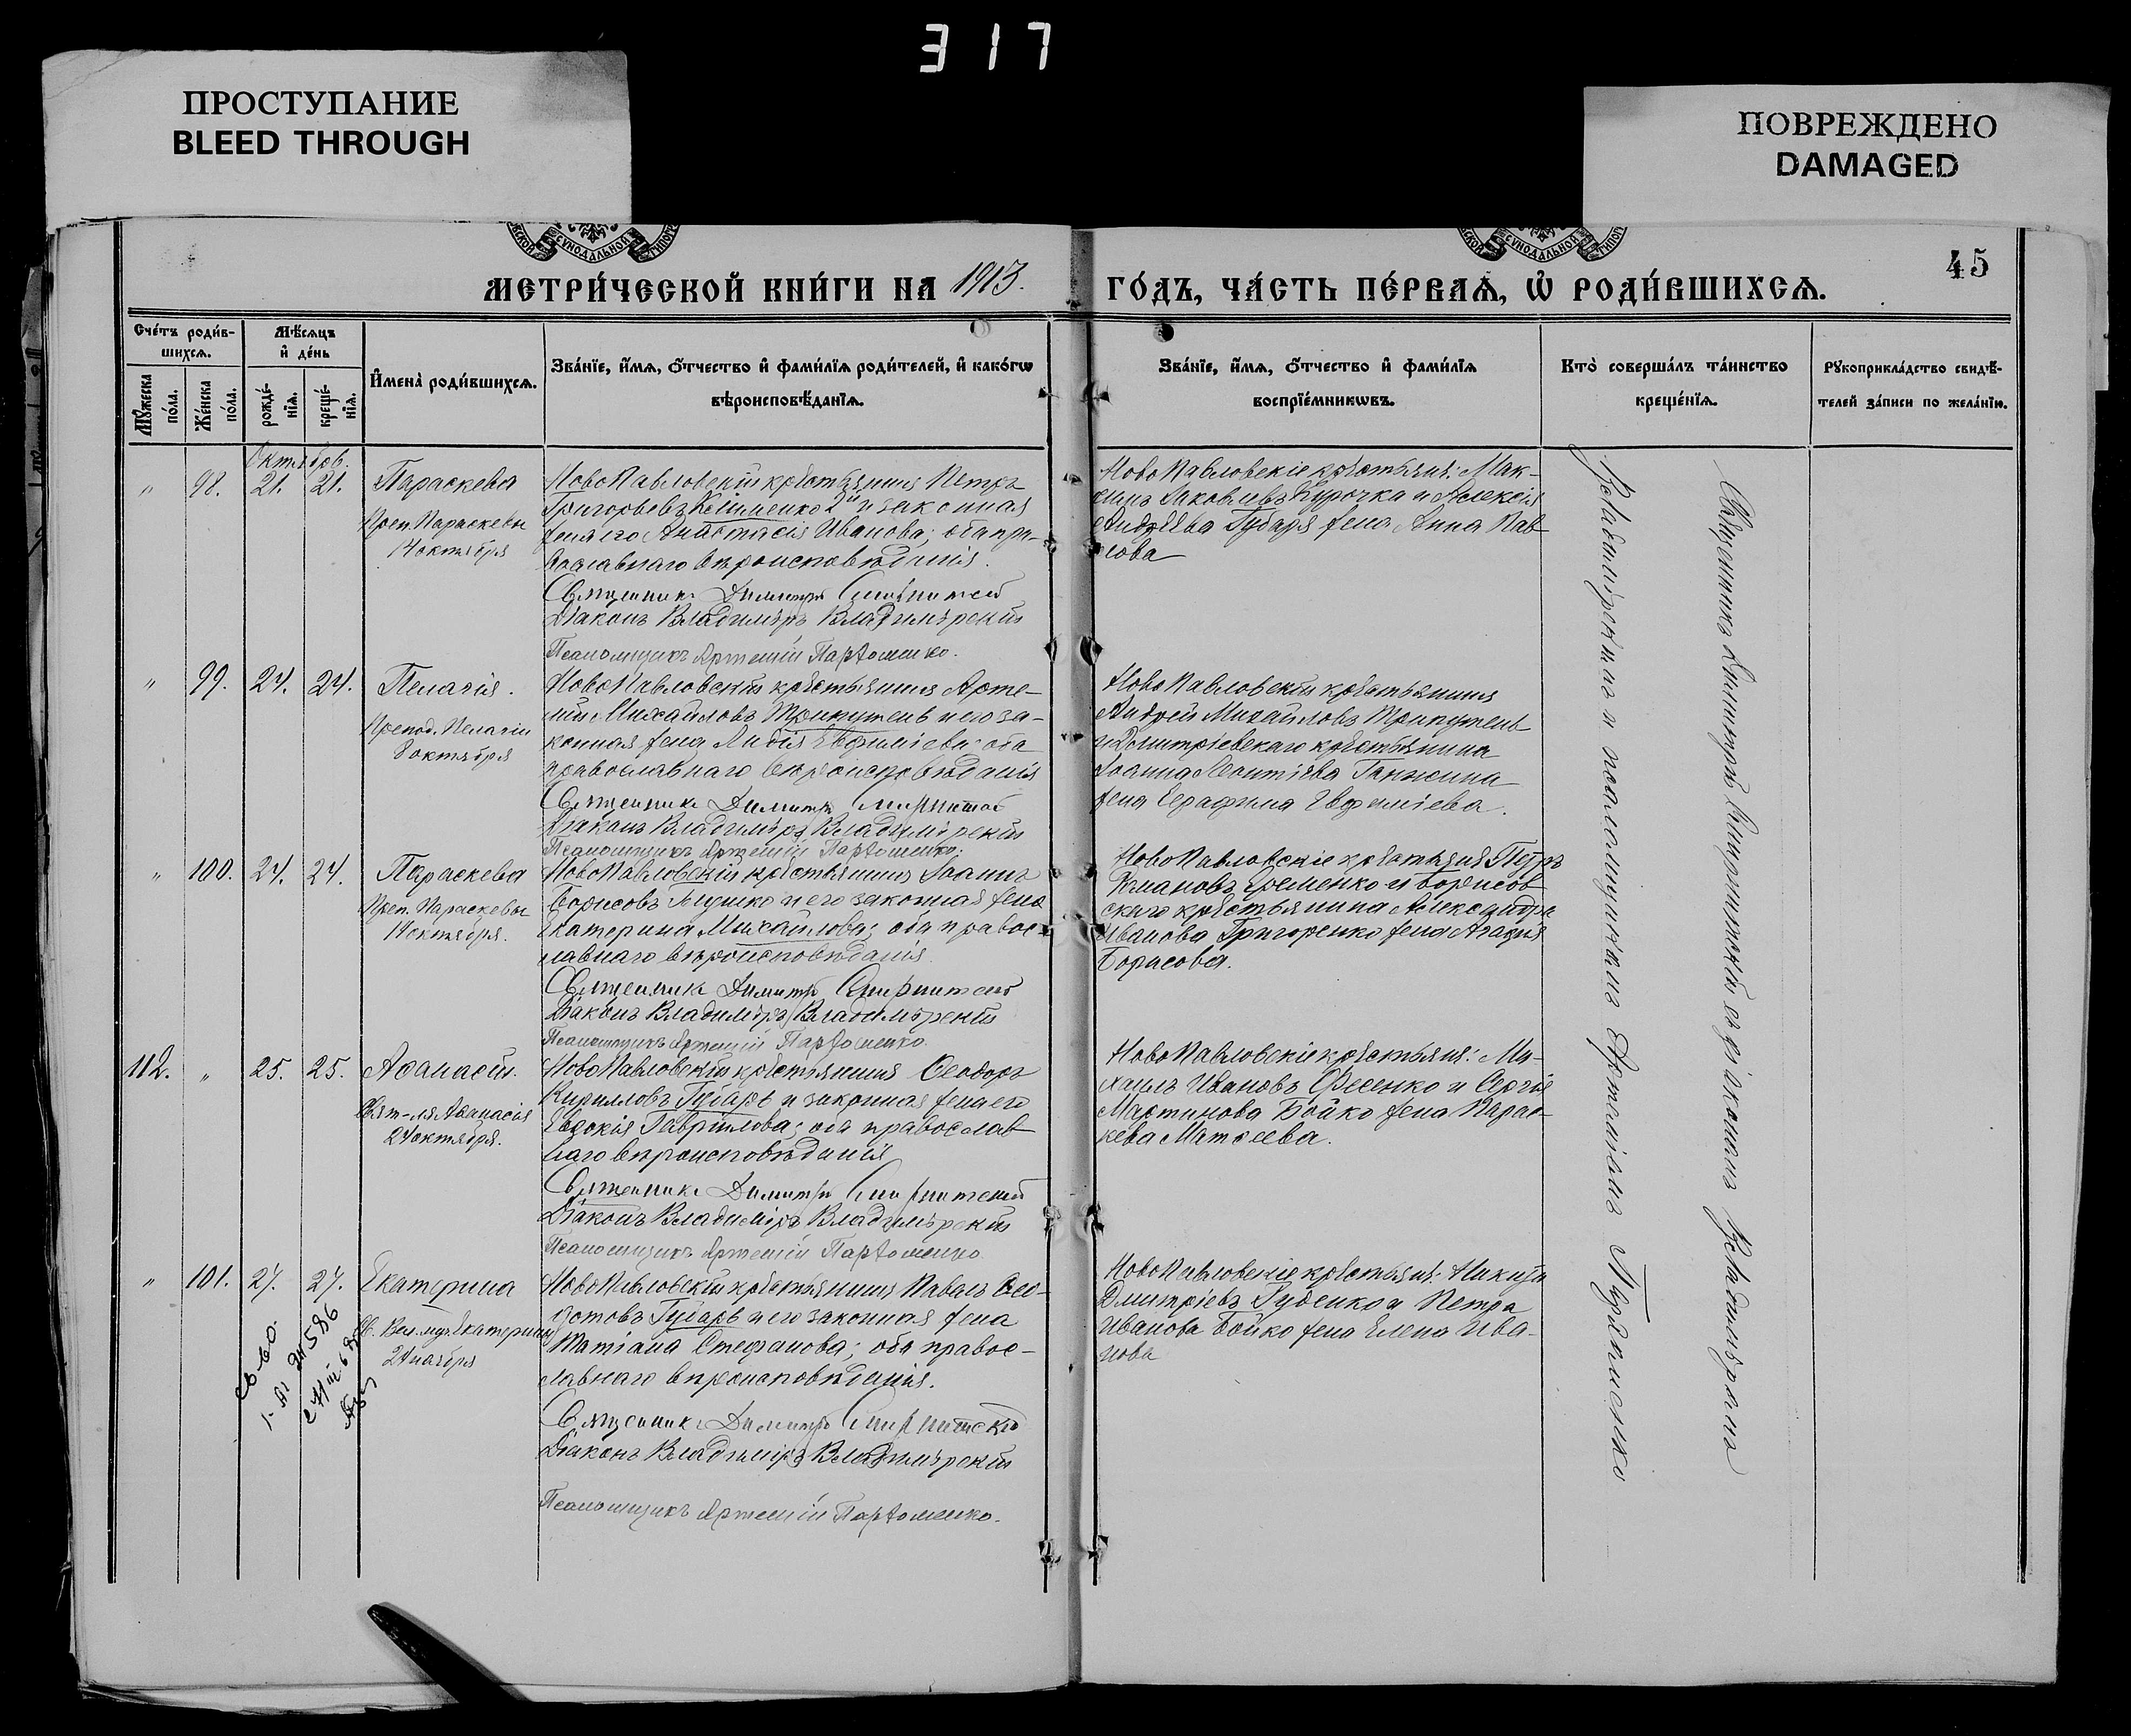 317
ПРОСТУПАНИЕ
BLEED THROUGH
ПОВРЕЖДЕНО
DAMAGED
СѴНОДАЛЬНОЙ
СѴНОДАЛЬНОЙ
45
МЕТРИ́ЧЕСКОЙ КНИ́ГИ НА 1913.
ГО́ДЪ, ЧА́СТЬ ПЕ́РВАѦ, Ѡ҆ РОДИ́ВШИХСѦ.
Сче́тъ роди́в-
шихсѧ.
Мѣ́сѧцъ
и҆ де́нь
Мꙋ́жеска
по́ла.
Же́нска
по́ла.
рожде́-
нїѧ.
креще́-
нїѧ.
И҆мена̀ роди́вшихсѧ.
Зва́нїе, и҆́мѧ, ѻ҆́тчество и҆ фами́лїѧ роди́телей, и҆ како́гѡ
вѣроисповѣ́данїѧ.
Зва́нїе, и҆́мѧ, ѻ҆́тчество и҆ фами́лїѧ
воспрїе́мникѡвъ.
Кто̀ соверша́лъ та́инство
креще́нїѧ.
Рꙋкоприкла́дство свидѣ́-
телей за́писи по жела́нїю.
Октябрь.
" 98. 21. 21. Параскева
Преп. Параскевы
14 октября
НовоПавловскій крестьянинъ Петръ
Григорьевъ Клименко 2й и законная
жена его Анастасія Иванова; оба пра-
вославнаго вѣроисповѣданія.
Священникъ Димитрій
Діаконъ Владиміръ Владимірскій
Псаломщикъ Артемій Пархоменко.
НовоПавловскіе крестьяне: Мак-
симъ Яковлевъ Курочка и Алексія
Андреева Губаря жена Анна Пав-
лова
" 99. 24. 24. Пелагія.
Препод. Пелагіи
8 октября
НовоПавловскій крестьянинъ Арте-
мій Михайловъ Трипутень и его за-
конная жена Лидія Евфиміева; оба
православнаго вѣроисповѣданія
Священникъ Димитрій
Діаконъ Владиміръ Владимірскій
Псаломщикъ Артемій Пархоменко.
НовоПавловскій крестьянинъ
Андрей Михайловъ Трипутень
и Димитріевскаго крестьянина
Іоанна Леонтіева Ганжина
жена Серафима Евфиміева.
" 100. 24. 24. Параскева
Преп. Параскевы
14 октября.
НовоПавловскій крестьянинъ Іоаннъ
Борисовъ и его законная жена
Екатерина Михайлова; оба правос-
лавнаго вѣроисповѣданія.
Священникъ Димитрій
Діаконъ Владиміръ Владимірскій
Псаломщикъ Артемій Пархоменко.
НовоПавловскіе крестьяне Петръ
Еременко и Борисов-
скаго крестьянина Александра
Иванова Григоренко жена Агафія
Борисова.
112. " 25. 25. Аѳанасій.
Свят-ля Аѳанасія
24 октября.
НовоПавловскій крестьянинъ Ѳеодоръ
Кирилловъ Губарь и законная жена его
Евдокія Гавріилова; оба православ
наго вѣроисповѣданія
Священникъ Димитрій
Діаконъ Владиміръ Владимірскій
Псаломщикъ Артемій Пархоменко
НовоПавловскіе крестьяне: Ми-
хаилъ Ивановъ Фесенко и Сергія
Мартинова Бойко жена Парас-
кева Матѳеева.
" 101. 27. 27. Екатерина
Св. Вел. муч. Екатерины
24 ноября
НовоПавловскій крестьянинъ Павелъ Ѳео-
 Губарь и его законная жена
Татіана Стефанова; оба правос-
лавнаго вѣроисповѣданія.
Священникъ Димитрій
Діаконъ Владиміръ Владимірскій
Псаломщикъ Артемій Пархоменко.
НовоПавловскіе крестьяне: Никита
Дмитріевъ Губенко и Петра
Иванова Бойко жена Елена Ива-
нова
Священникъ Димитрій съ діакономъ Владиміромъ
Владимірскимъ и псаломщикомъ Артеміемъ Пархоменко